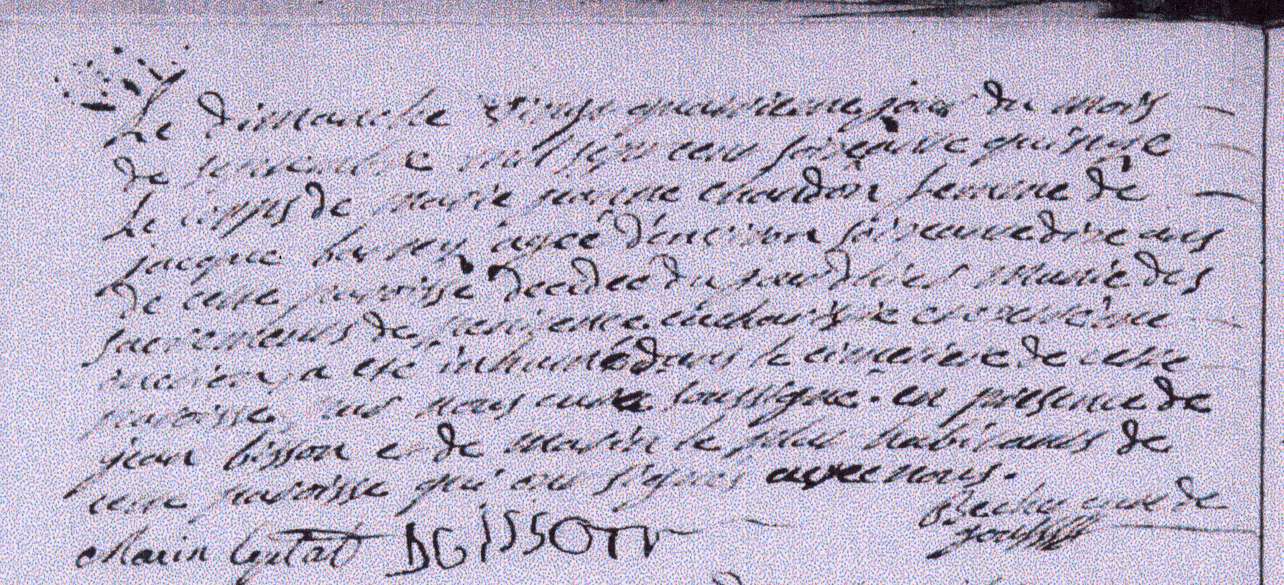 Le dimanche vingt quatrieme jour du mois
de septembre mil sept cent soixante quinze
le corps de marie jeanne chardon femme de
jacque agée d'environ soixante dix ans
de cette paroisse decedée du jour d'hier munie des
sacrements de penitence eucharistie et extreme
onction, a été inhumé dans le cimetiere de cette
paroisse, par nous curé soussigné. en presence de
jean bisson et de marin le habitants de
cette paroisse qui ont signés avec nous.
curé de
Marin